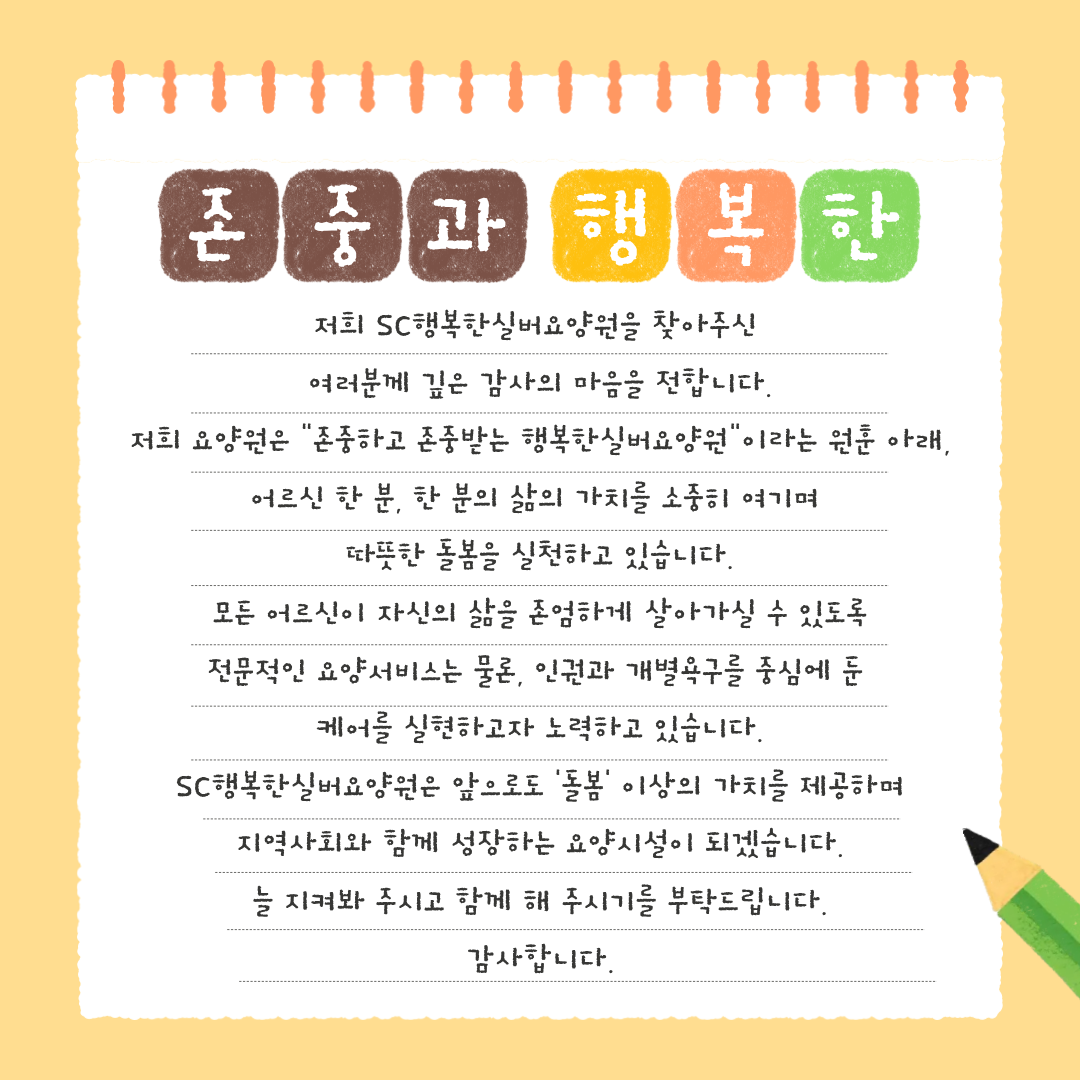 존중과 행복한
저희 SC행복한실버요양원을 찾아주신
여러분께 깊은 감사의 마음을 전합니다.
저희 요양원은 "존중하고 존중받는 행복한실버요양원"이라는 원훈 아래,
어르신 한 분, 한 분의 삶의 가치를 소중히 여기며
따뜻한 돌봄을 실천하고 있습니다.
모든 어르신이 자신의 삶을 존엄하게 살아가실 수 있도록
전문적인 요양서비스는 물론, 인권과 개별욕구를 중심에 둔
케어를 실현하고자 노력하고 있습니다.
SC행복한실버요양원은 앞으로도 '돌봄' 이상의 가치를 제공하며
지역사회와 함께 성장하는 요양시설이 되겠습니다.
늘 지켜봐 주시고 함께 해 주시기를 부탁드립니다.
감사합니다.